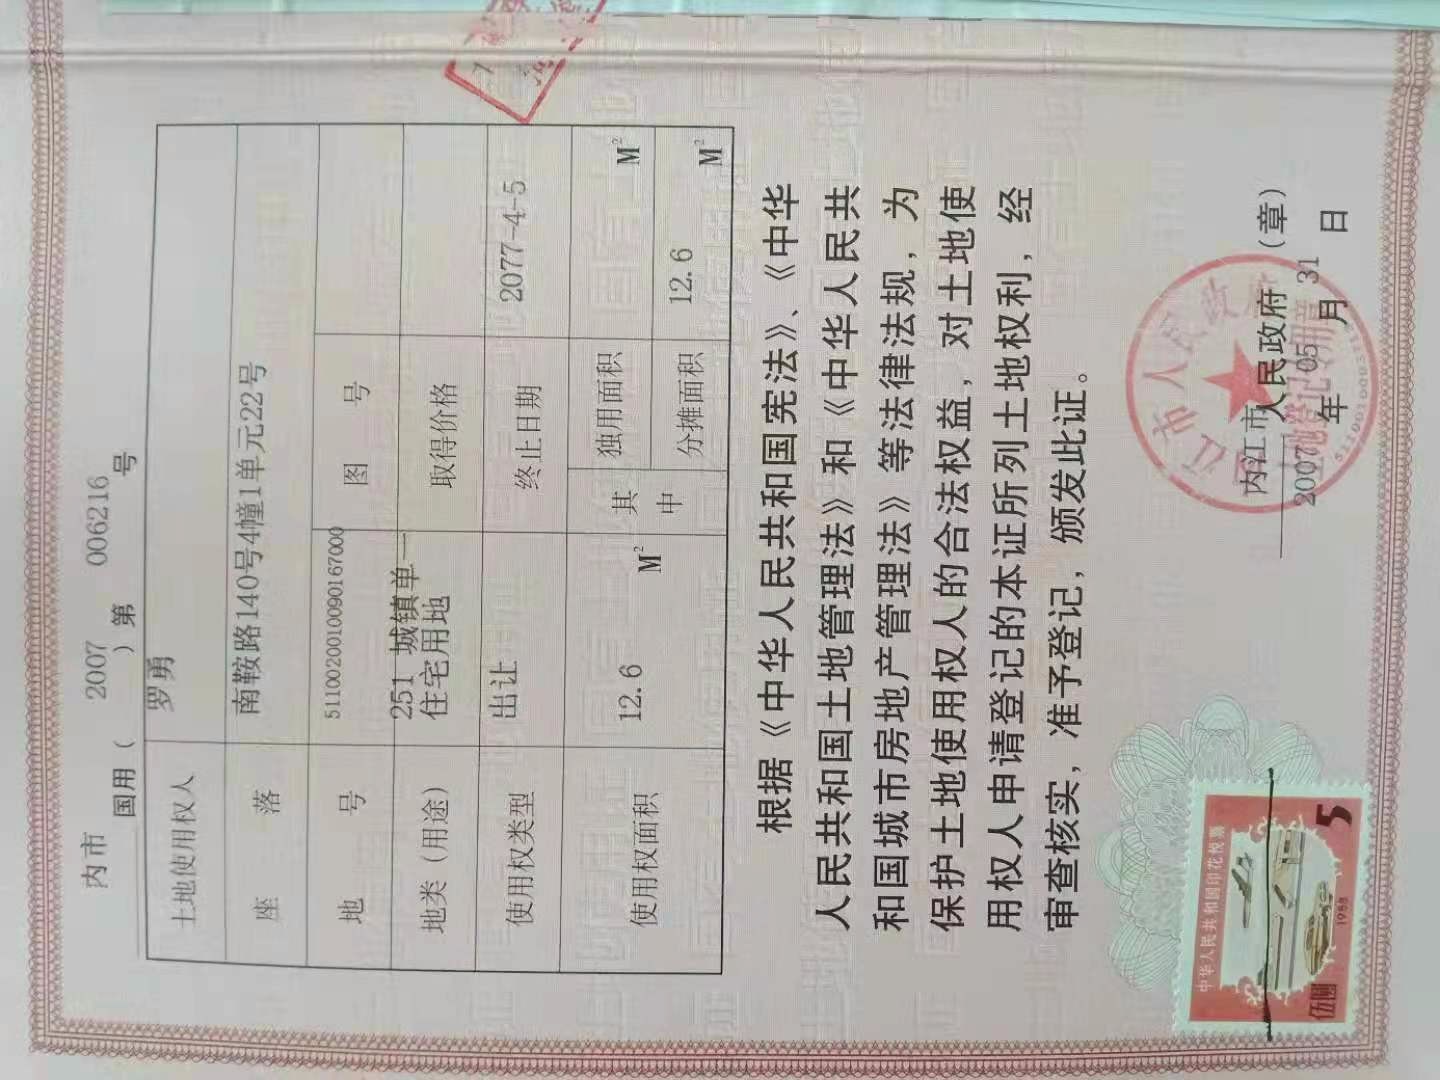 内市
国用( 2007 )第 006216 号
土地使用权人 罗勇
座 落 南鞍路140号4幢1单元22号
地 号 5110020010090167000 图 号
地类(用途) 251 城镇单一住宅用地 取得价格
使用权类型 出让 终止日期 2077-4-5
使用权面积 12.6 M² 其中 独用面积 M²
分摊面积 12.6 M²
根据《中华人民共和国宪法》、《中华
人民共和国土地管理法》和《中华人民共
和国城市房地产管理法》等法律法规，为
保护土地使用权人的合法权益，对土地使
用权人申请登记的本证所列土地权利，经
审查核实，准予登记，颁发此证。
内江市人民政府（章）
2007年05月31日
江市人民政府
土地登记专用章
中华人民共和国印花税票
伍圆 1988 5